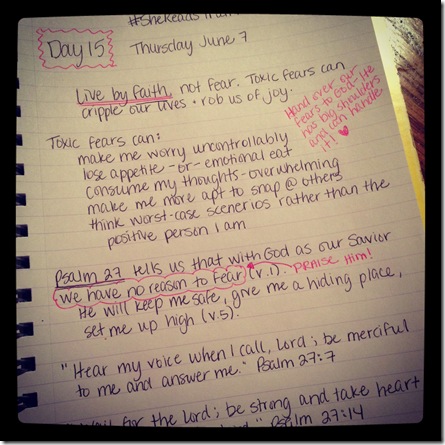 #SheReadsTruth
Day 15
Thursday June 7
Live by faith, not fear. Toxic fears can
cripple our lives + rob us of joy.
Hand over our
fears to God - He
has big shoulders
and can handle
it! ♥
Toxic fears can:
make me worry uncontrollably
lose appetite -or- emotional eat
consume my thoughts - overwhelming
make me more apt to snap @ others
think worst-case scenerios rather than the
positive person I am
Psalm 27 tells us that with God as our Savior
we have no reason to fear (v.1). PRAISE HIM!
He will keep me safe, give me a hiding place,
set me up high (v.5).
"Hear my voice when I call, Lord; be merciful
to me and answer me." Psalm 27:7
for the Lord; be strong and take heart
Psalm 27:14